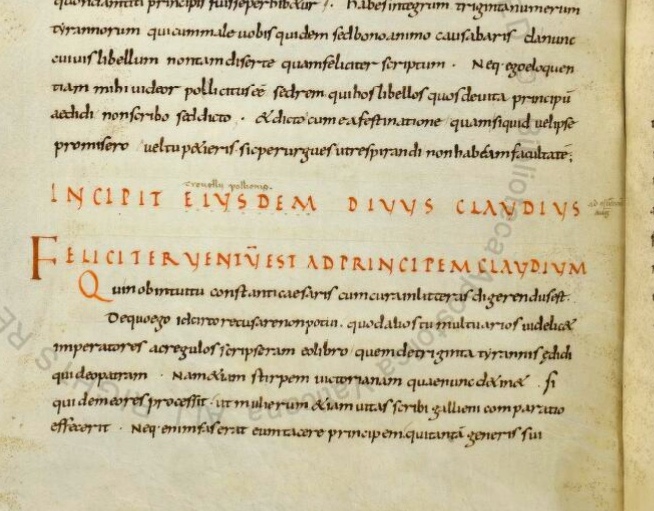 quondiantiti principis fuisse perhibetur. habes integrum triginta numerum
tyrannorum qui cum male uobis quidem sed bono animo causabaris da nunc
cuiuis libellum non tam diserte quam feliciter scriptum. Neq ego eloquen
tiam mihi uideor pollicitus eē sed rem qui hos libellos quos de uita principū
aedidi non scribo sed dicto. & dicto cum ea festinatione quam si quid uel ipse
promisero uel tu petieris sic perurgues ut respirandi non habeam facultatē;
INCIPIT EIUSDEM DIUUS CLAUDIUS
FELICITER UENTŪ EST AD PRINCIPEM CLAUDIUM
Qui nob intuitu constanti caesaris cum cura in litteras digerendus est.
De quo ego idcirco recusare non potui. quod alios tumultuarios uidelic&
imperatores ac regulos scripseram eo libro quem de triginta tyrannis edidi
qui cleopatram. Nam & iam stirpem uictorianam quae nunc d&in&. si
quidem eo res processit. ut mulierum &iam uitas scribi gallieni comparatio
effecerit. Neq enim fas erat eum tacere principem. qui tantā generis sui